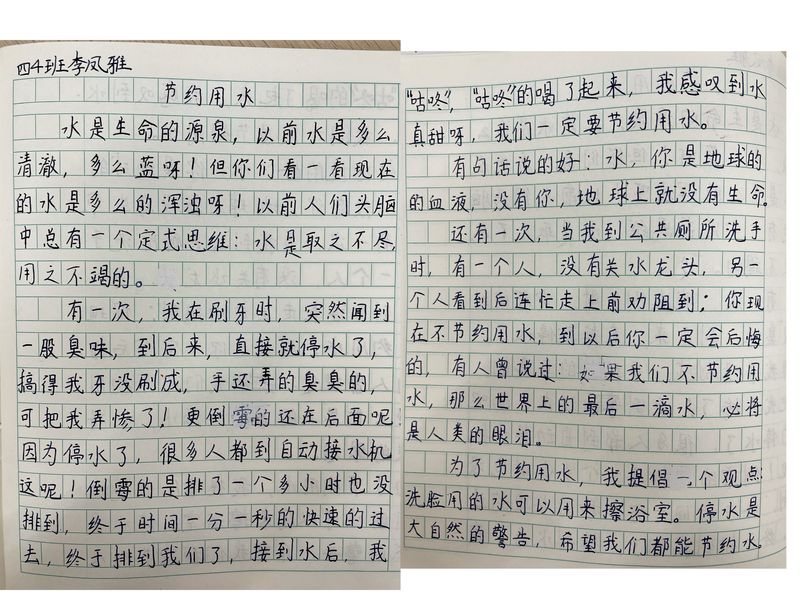 四4班李凤雅
节约用水
水是生命的源泉，以前水是多么
清澈，多么蓝呀！但你们看一看现在
的水是多么的浑浊呀！以前人们头脑
中总有一个定式思维：水是取之不尽，
用之不竭的。
有一次，我在刷牙时，突然闻到
一股臭味，到后来，直接就停水了，
搞得我牙没刷成，手还弄的臭臭的，
可把我弄惨了！更倒霉的还在后面呢
因为停水了，很多人都到自动接水机
这呢！倒霉的是排了一个多小时也没
排到，终于时间一分一秒的快速的过
去，终于排到我们了，接到水后，我
“咕咚”，“咕咚”的喝了起来，我感叹到水
真甜呀，我们一定要节约用水。
有句话说的好：水，你是地球的
的血液，没有你，地球上就没有生命。
还有一次，当我到公共厕所洗手
时，有一个人，没有关水龙头，另一
个人看到后连忙走上前劝阻到：你现
在不节约用水，到以后你一定会后悔
的，有人曾说过：如果我们不节约用
水，那么世界上的最后一滴水，必将
是人类的眼泪。
为了节约用水，我提倡一个观点：
洗脸用的水可以用来擦浴室。停水是
大自然的警告，希望我们都能节约水。